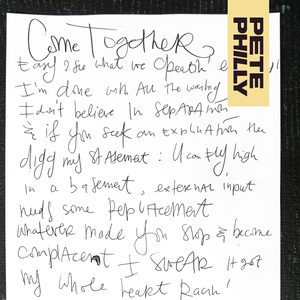 Come Together
PETE PHILLY
Easy 2 see what we
I'm done with All the wasting
I don't believe in separation
& if you seek an explanation then
digg my statement: U can fly high
in a basement, external input
needs some replacement
whatever made you stop & become
complacent I swear it got
my whole heart racin'